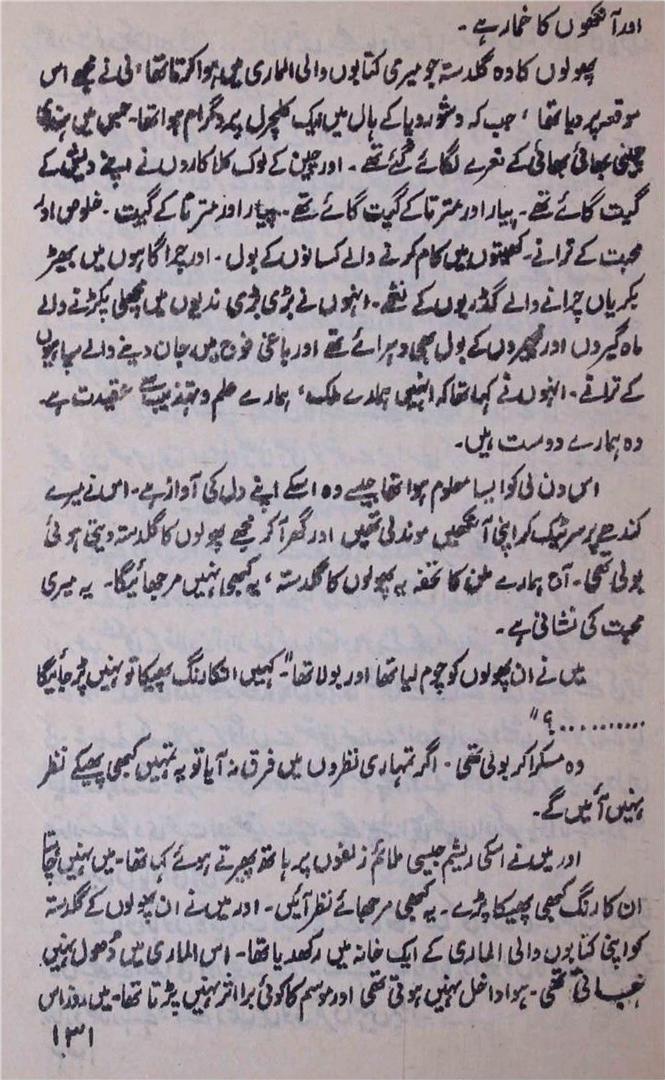 اور آنکھوں کا خمار ہے۔
پھولوں کا وہ گلدستہ جو میری کتابوں والی الماری میں ہوا کرتا تھا، لی نے مجھے اس
موقعہ پر دیا تھا، جب کہ وشودیا کے ہال میں ایک کلچرل پروگرام ہوا تھا۔ جس میں ہندی
چینی بھائی بھائی کے نعرے لگائے گئے تھے۔ اور چین کے لوک کلاکاروں نے اپنے دیش کے
گیت گائے تھے۔ پیار اور متر تا کے گیت گائے تھے۔ پیار اور متر تا کے گیت۔ خلوص اور
محبت کے ترانے۔ کھیتوں میں کام کرنے والے کسانوں کے بول۔ اور چراگاہوں میں بھیڑ
بکریاں چرانے والے گڈریوں کے نغمے۔ انہوں نے بڑی بڑی ندیوں میں مچھلی پکڑنے والے
ماہ گیروں اور مچھیروں کے بول بھی دہرائے تھے اور باغی فوج میں جان دینے والے سپاہیوں
کے ترانے۔ انہوں نے کہا تھا کہ انہیں ہمارے ملک، ہمارے علم و تہذیب سے عقیدت ہے۔
وہ ہمارے دوست ہیں۔
اس دن لی کو ایسا معلوم ہوا تھا جیسے وہ اسکے اپنے دل کی آواز ہے۔ اس نے میرے
کندھے پر سر ٹیک کر اپنی آنکھیں موند لی تھیں اور گھر آ کر مجھے پھولوں کا گلدستہ دیتی ہوئی
بولی تھی۔ آج ہمارے ملن کا تحفہ یہ پھولوں کا گلدستہ، یہ کبھی نہیں مرجھائیگا۔ یہ میری
محبت کی نشانی ہے۔
میں نے ان پھولوں کو چوم لیا تھا اور بولا تھا "۔ کہیں انکا رنگ پھیکا تو نہیں پڑ جائیگا
..........؟"
وہ مسکرا کر بولی تھی۔ اگر تمہاری نظروں میں فرق نہ آیا تو یہ تمہیں کبھی پھیکے نظر
نہیں آئیں گے۔
اور میں نے اسکی ریشم جیسی ملائم زلفوں پر ہاتھ پھیرتے ہوئے کہا تھا۔ میں نہیں چاہتا
ان کا رنگ کبھی پھیکا پڑے۔ یہ کبھی مرجھائے نظر آئیں۔ اور میں نے ان پھولوں کے گلدستہ
کو اپنی کتابوں والی الماری کے ایک خانہ میں رکھدیا تھا۔ اس الماری میں دُھول نہیں
تھی۔ ہوا داخل نہیں ہوتی تھی اور موسم کا کوئی برا اثر نہیں پڑتا تھا۔ میں روز اس
۱۳۱